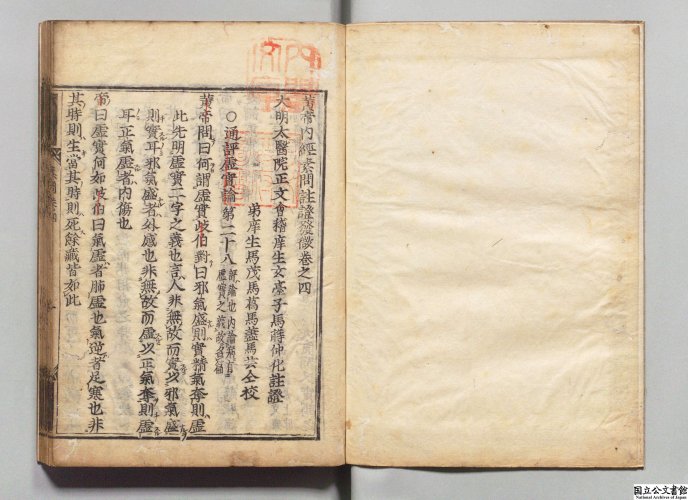 黄帝内經素問註證發微卷之四
大明太醫院正文會稽庠生玄臺子馬蒔仲化註證
弟庠生馬茂馬葛馬藎馬芸仝校
○通評虚實論第二十八
黄帝問曰何謂虚實歧伯對曰邪氣盛則實精氣奪則虚
此先明虚實二字之義也言人非無故而實以邪氣盛
則實耳邪氣盛者外感也非無故而虚以正氣奪則虚
耳正氣虚者内傷也
帝曰虚實何如歧伯曰氣虚者肺虚也氣逆者足寒也非
其時則生當其時則死餘藏皆如此
国立公文書館
National Archives of Japan